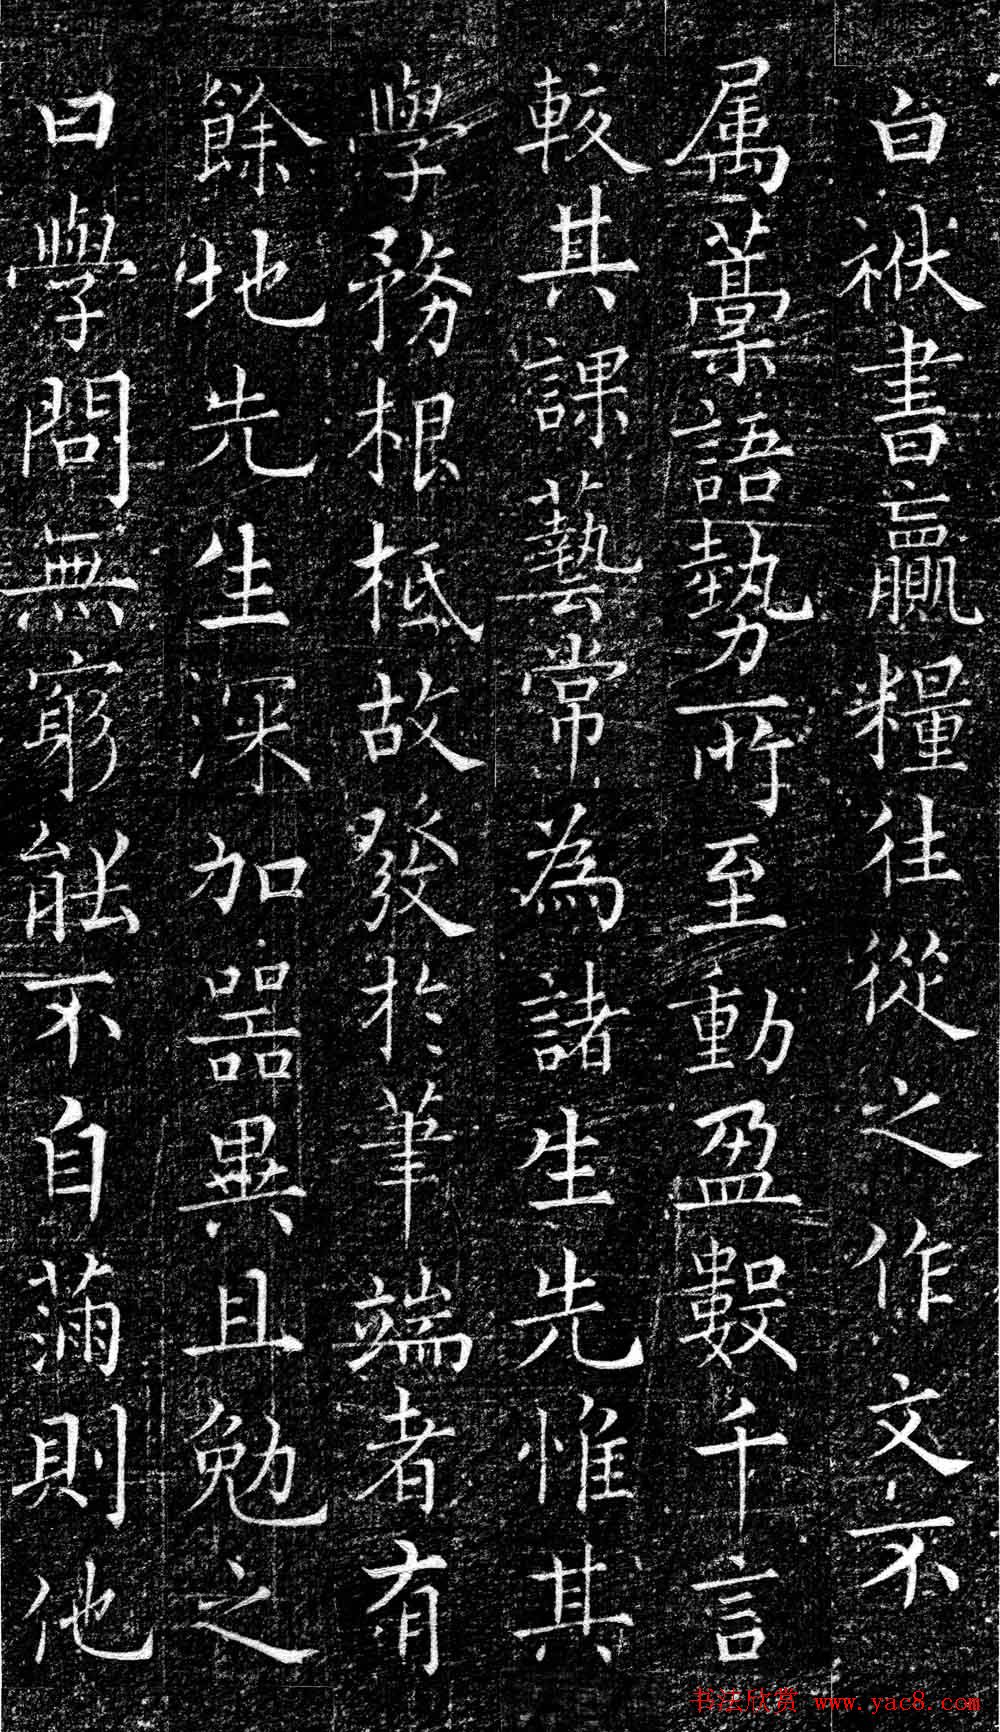 白袱書贏糧往從之作文不
属藁語勢所至動盈數千言
較其課藝常為諸生先惟其
學務根柢故發於筆端者有
餘地先生深加器異且勉之
曰學問無窮能不自滿則他
书法欣赏 www.yac8.com